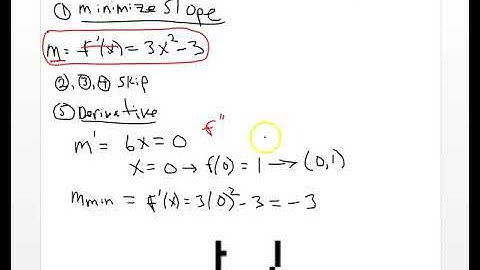 ① minimize slope
m = f'(x) = 3x² - 3
②, ③, ④ skip
⑤ Derivative
m' = 6x = 0 f"
x = 0 → f(0) = 1 → (0,1)
m min = f'(x) = 3(0)² - 3 = -3